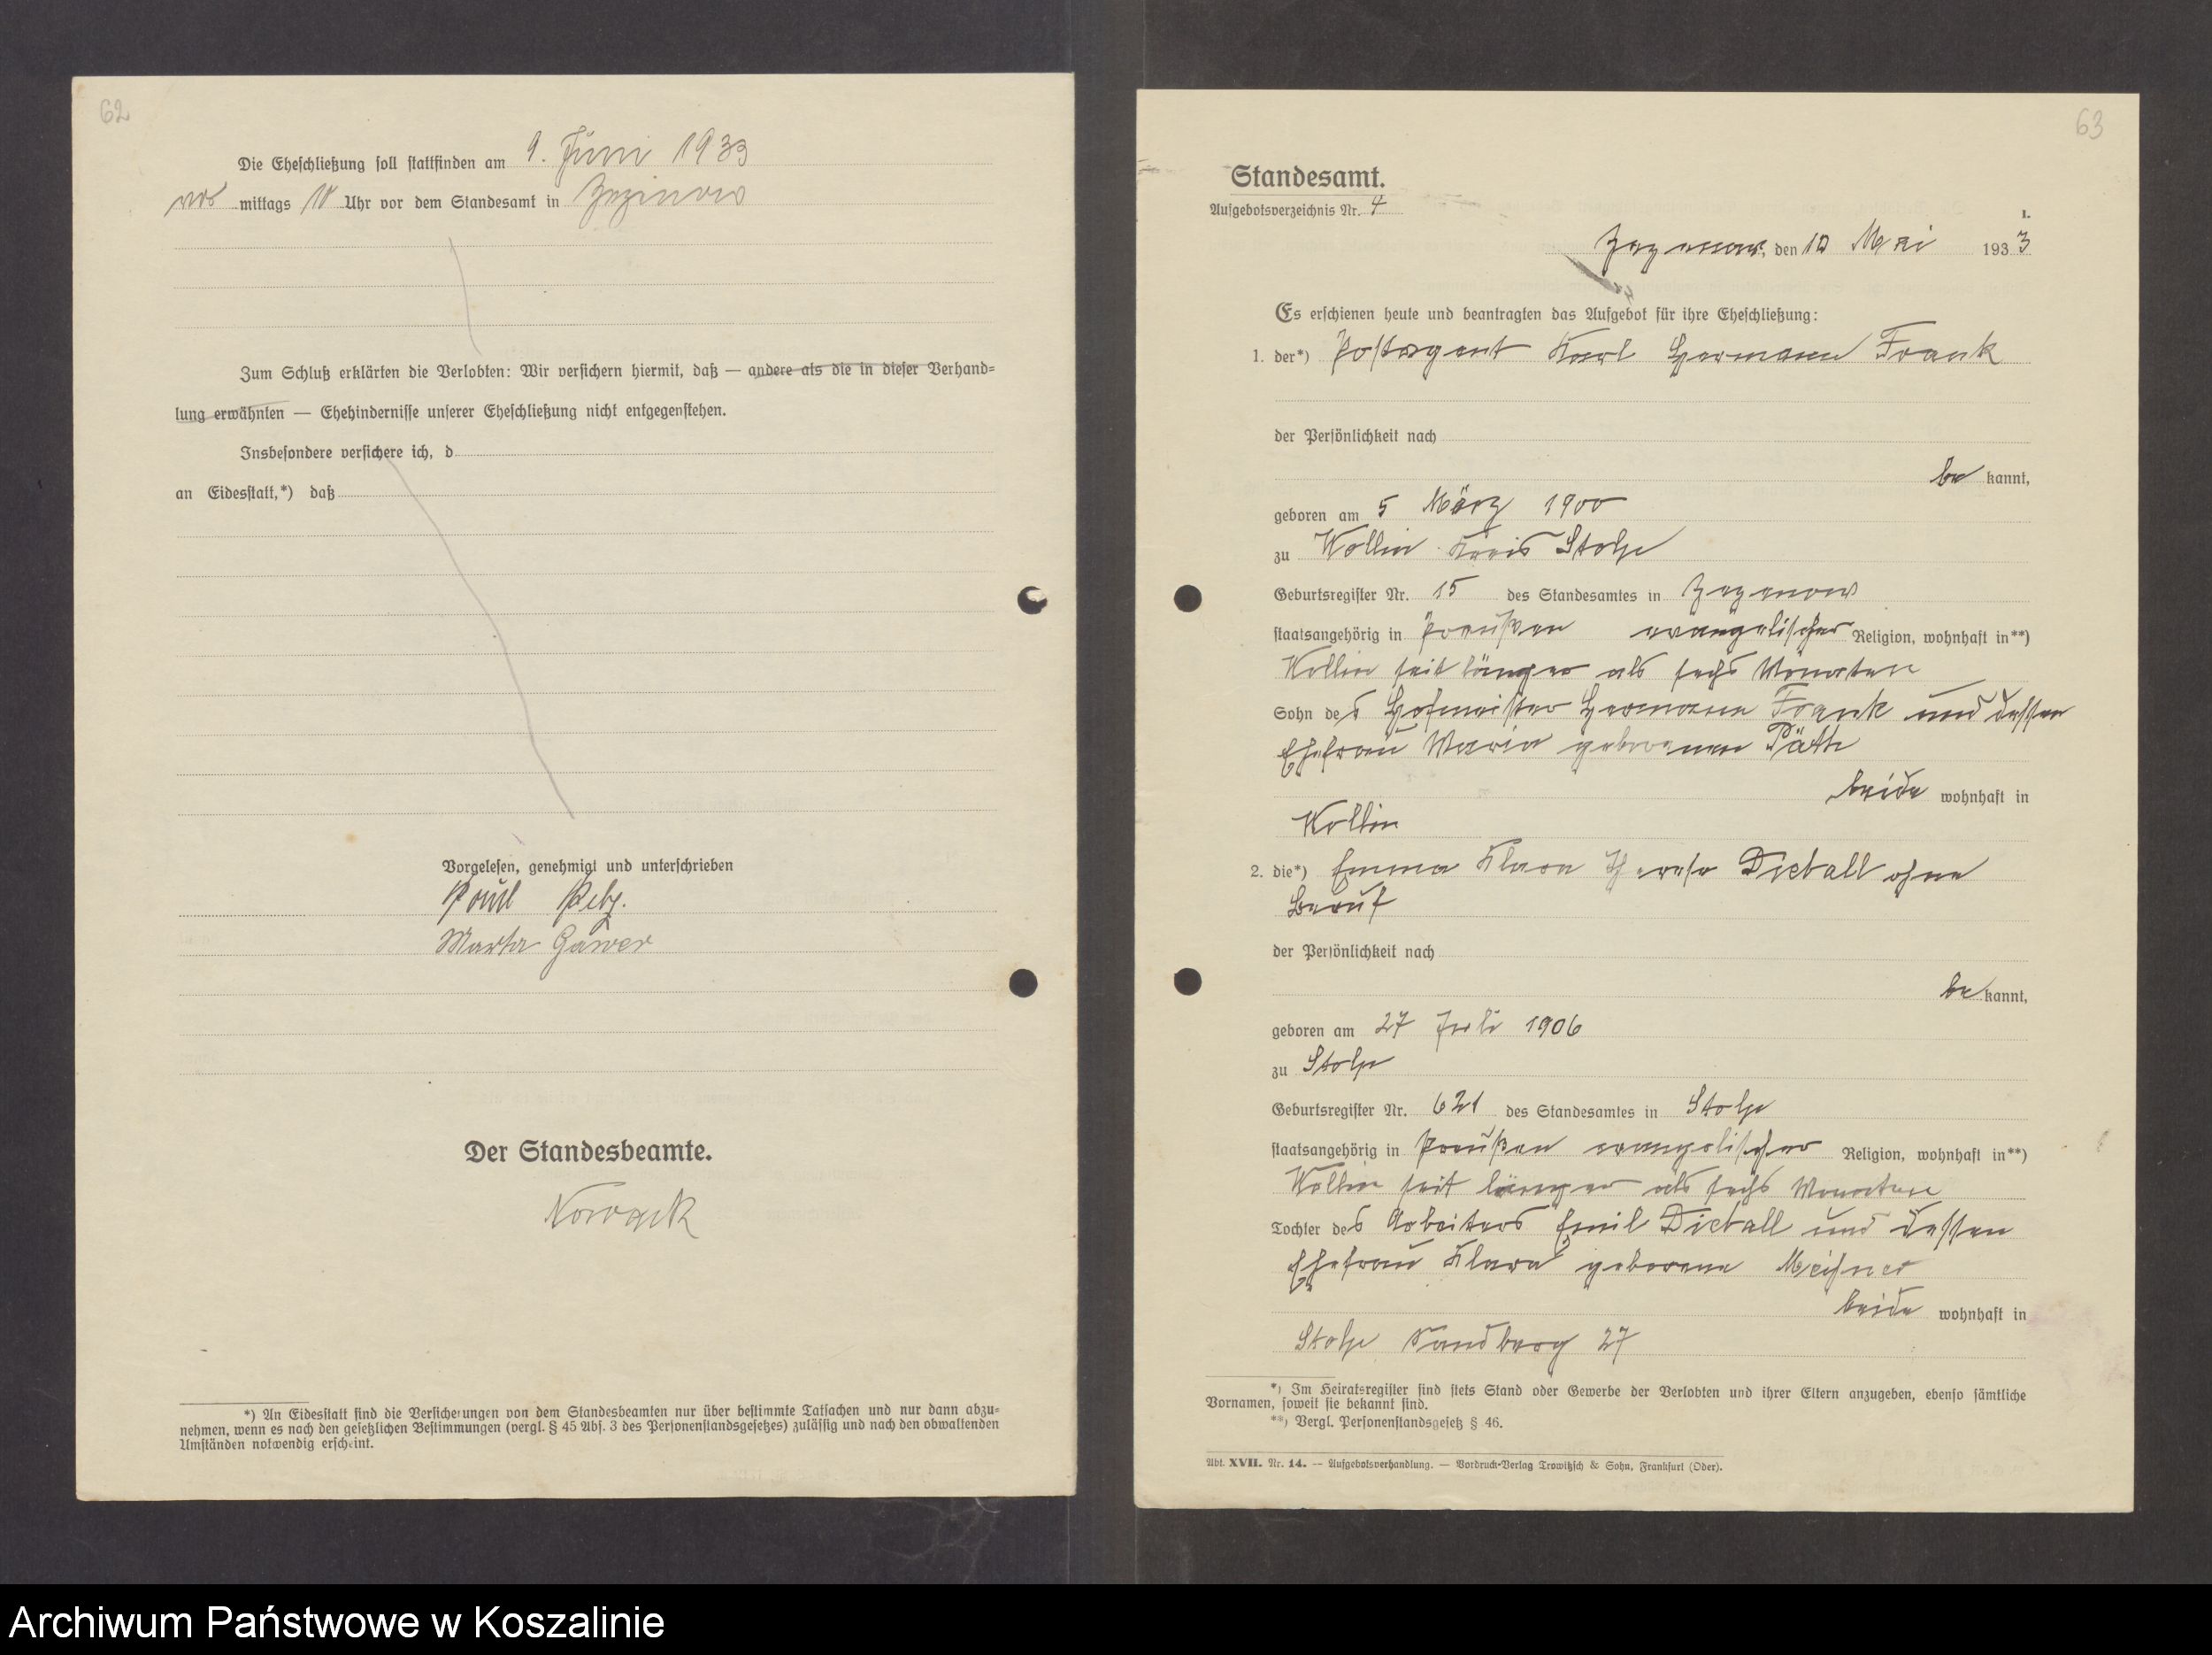 62
Die Eheschließung soll stattfinden am 1. Juni 1933
vor mittags 10 Uhr vor dem Standesamt in Zezenow
Zum Schluß erklärten die Verlobten: Wir versichern hiermit, daß — andere als die in dieser Verhand-
lung erwähnten — Ehehindernisse unserer Eheschließung nicht entgegenstehen.
Insbesondere versichere ich, d
an Eidesstatt,*) daß
Vorgelesen, genehmigt und unterschrieben
Paul
Marta Gawer
Der Standesbeamte.
Nowack
*) An Eidesstatt sind die Versicherungen von dem Standesbeamten nur über bestimmte Tatsachen und nur dann abzu-
nehmen, wenn es nach den gesetzlichen Bestimmungen (vergl. § 45 Abs. 3 des Personenstandsgesetzes) zulässig und nach den obwaltenden
Umständen notwendig erscheint.
63
Standesamt.
Aufgebotsverzeichnis Nr. 4
1.
Zezenow, den 10 Mai 1933
Es erschienen heute und beantragten das Aufgebot für ihre Eheschließung:
1. der*) Postagent Karl Hermann Frank
der Persönlichkeit nach
be kannt,
geboren am 5 März 1900
zu Wollin Kreis Stolp
Geburtsregister Nr. 15 des Standesamtes in Zezenow
staatsangehörig in Preußen evangelischer Religion, wohnhaft in**)
Wollin seit länger als sechs Monaten
Sohn des Hofmeister Hermann Frank und dessen
Ehefrau Maria geborenen Päth
beide wohnhaft in
Wollin
2. die*) Emma Klara Therese Dietball ohne
Beruf
der Persönlichkeit nach
be kannt,
geboren am 27 Juli 1906
zu Stolp
Geburtsregister Nr. 621 des Standesamtes in Stolp
staatsangehörig in Preußen evangelischer Religion, wohnhaft in**)
Wollin seit länger als sechs Monaten
Tochter des Arbeiters Emil Dietball und dessen
Ehefrau Klara geborene Meißner
beide wohnhaft in
Stolp Sandberg 27
*) Im Heiratsregister sind stets Stand oder Gewerbe der Verlobten und ihrer Eltern anzugeben, ebenso sämtliche
Vornamen, soweit sie bekannt sind.
**) Vergl. Personenstandsgesetz § 46.
Abt. XVII. Nr. 14. — Aufgebotsverhandlung. — Vordruck-Verlag Trowitzsch & Sohn, Frankfurt (Oder).
Archiwum Państwowe w Koszalinie